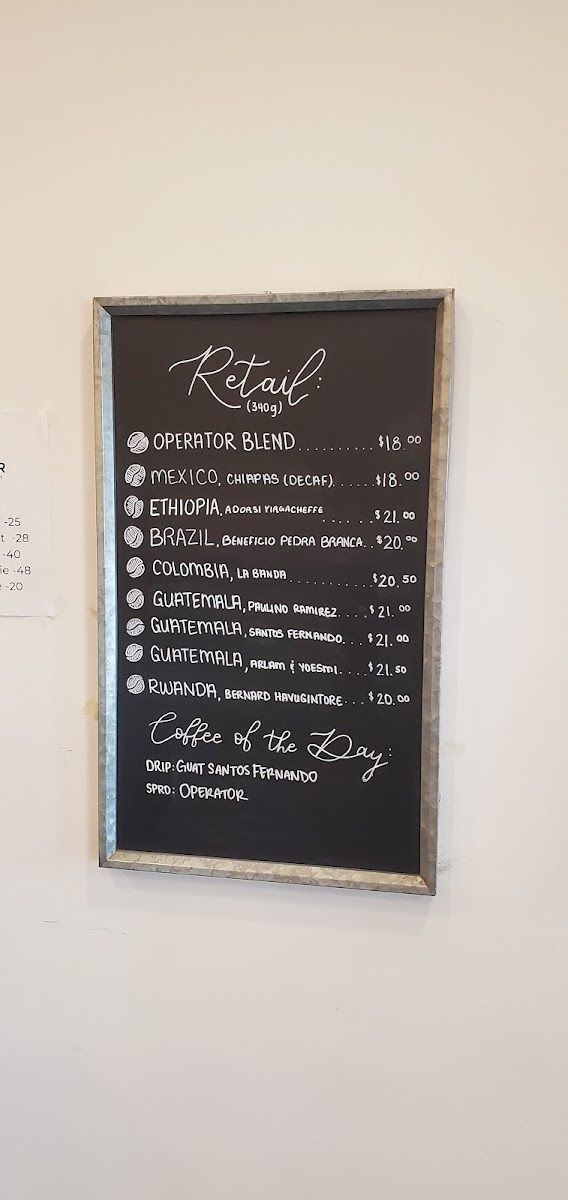 Retail:
(340g)
OPERATOR BLEND..........$18.00
MEXICO, CHIAPAS (DECAF)......$18.00
ETHIOPIA, ADORSI YIRGACHEFFE......$21.00
BRAZIL, BENEFICIO PEDRA BRANCA..$20.00
COLOMBIA, LA BANDA............$20.50
GUATEMALA, PAULINO RAMIREZ....$21.00
GUATEMALA, SANTOS FERNANDO...$21.00
GUATEMALA, ARLAM & YOESMI....$21.50
RWANDA, BERNARD HAVUGINTORE...$20.00
Coffee of the Day:
DRIP: GUAT SANTOS FERNANDO
SPRO: OPERATOR
R
-25
t -28
-40
ie -48
-20